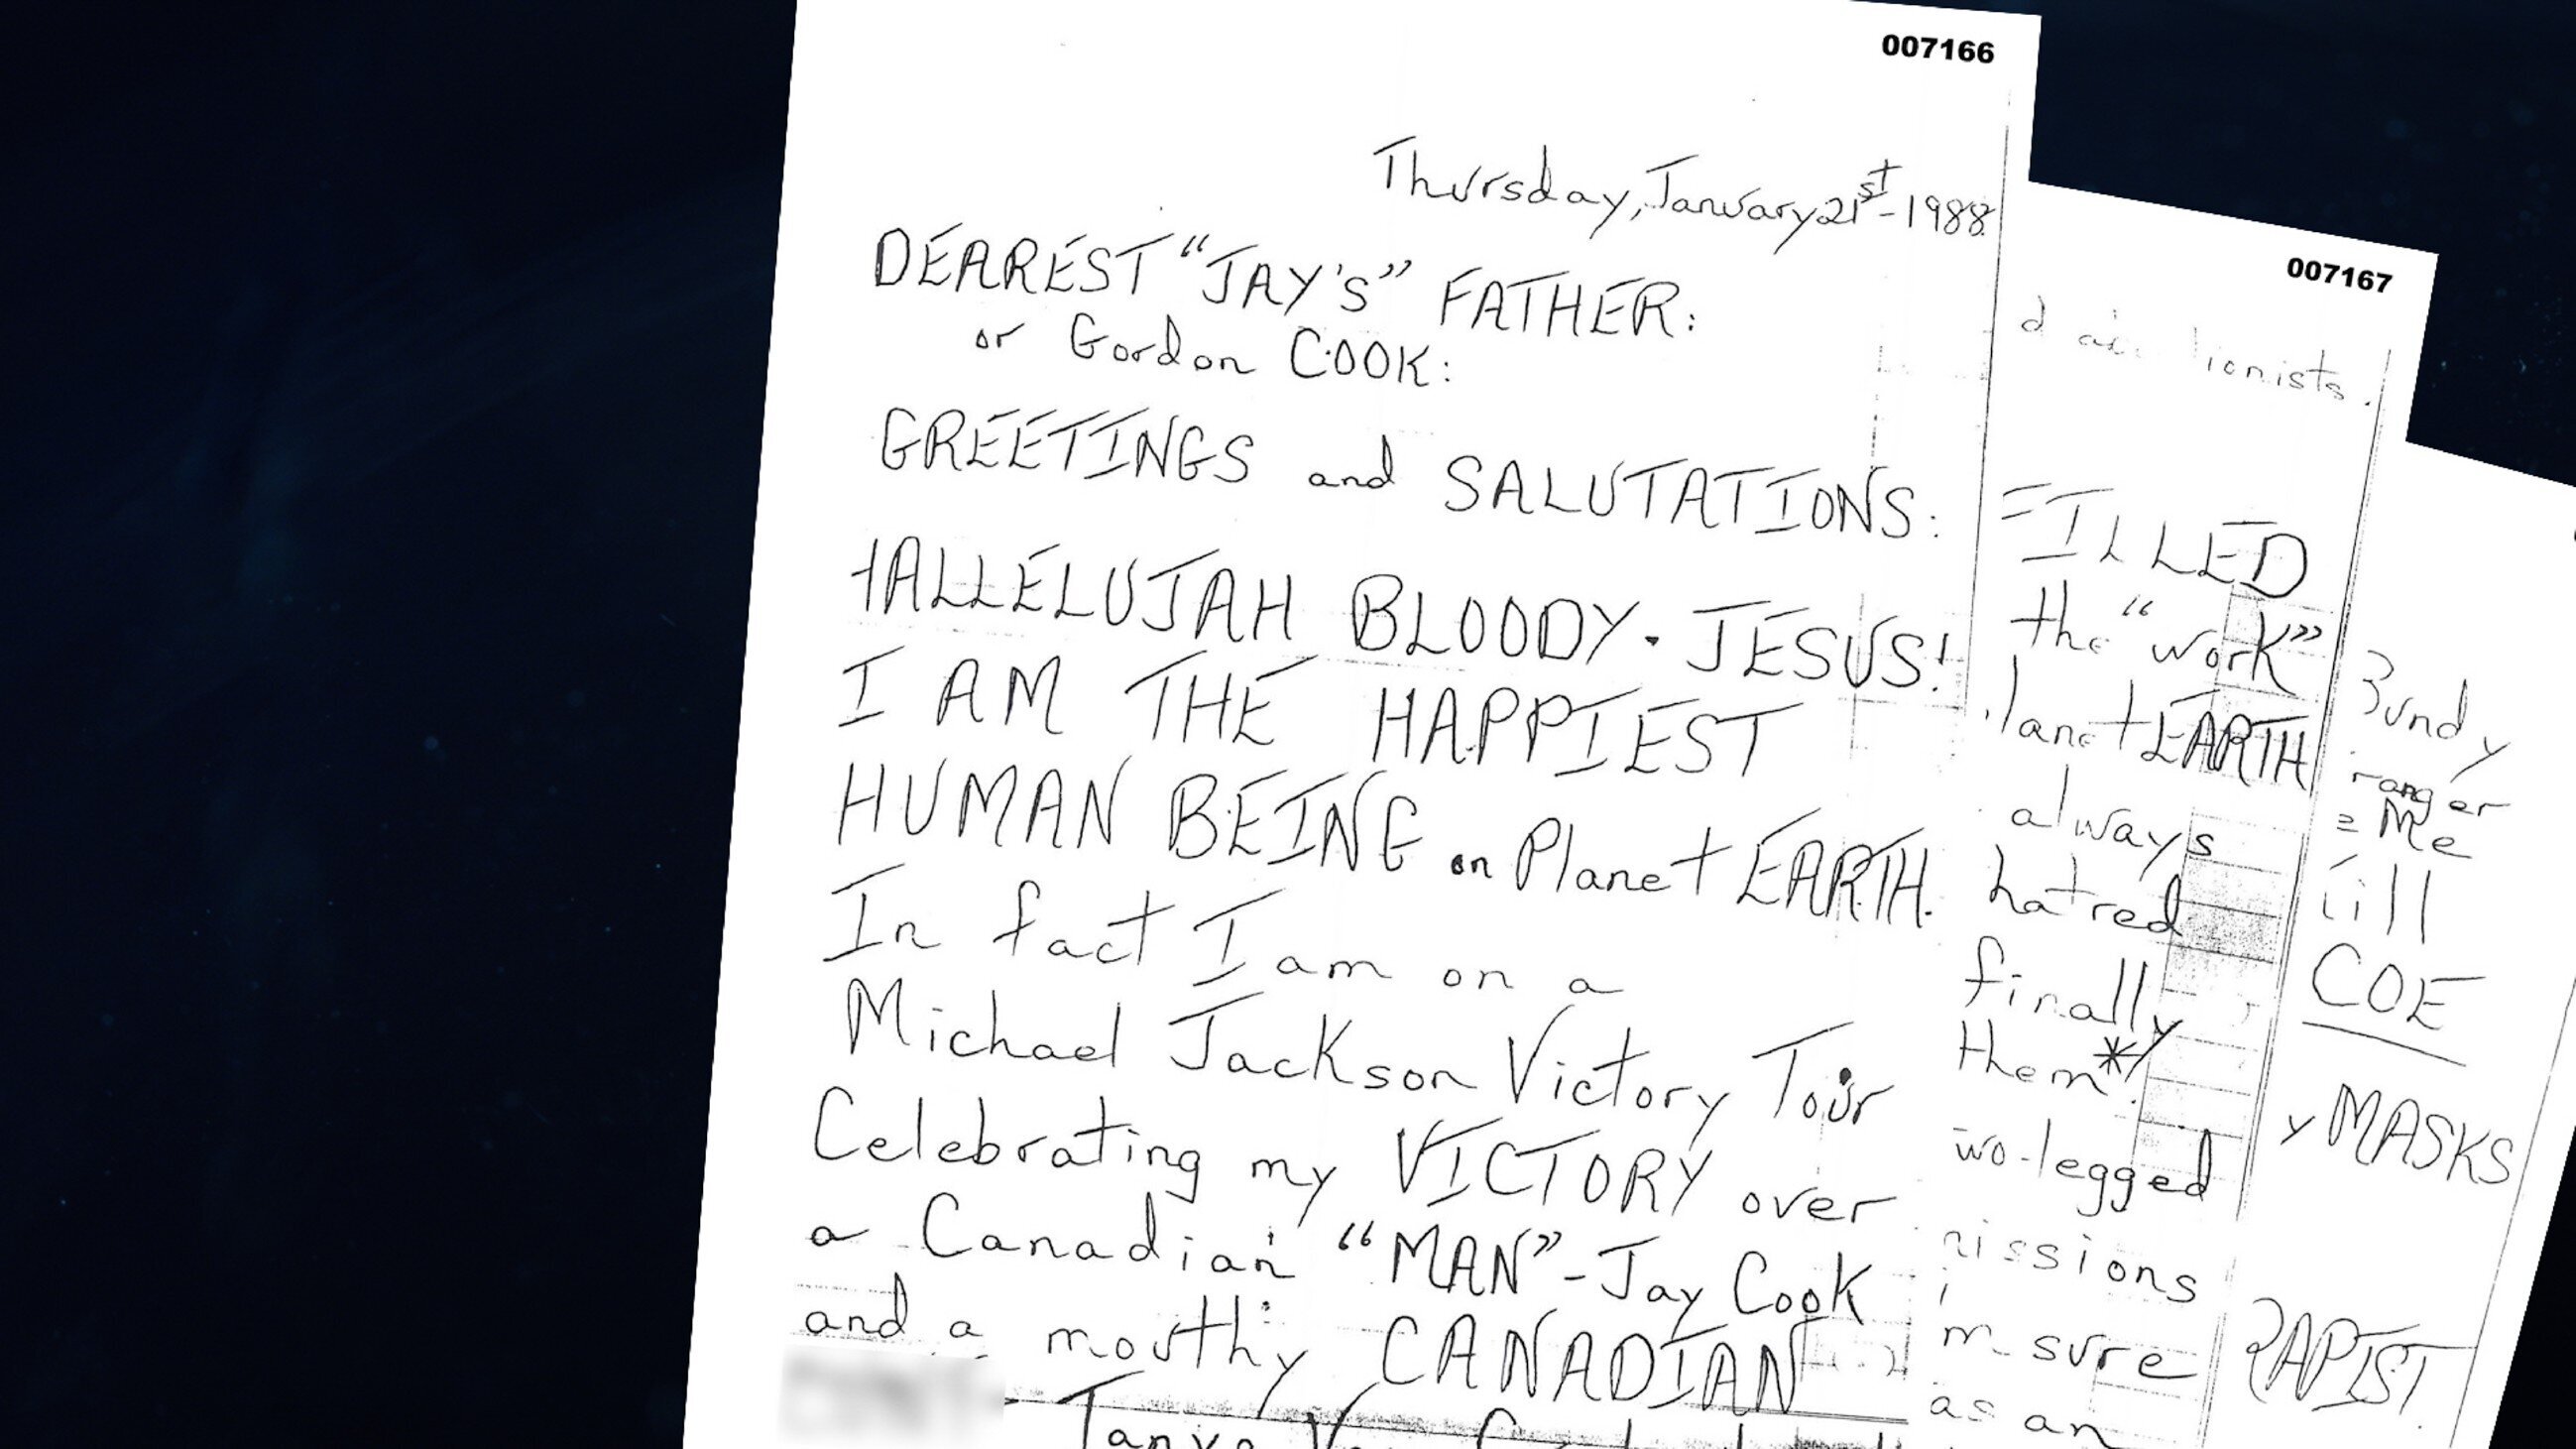 007166
Thursday, January 21st-1988
DEAREST "JAY'S" FATHER:
or Gordon COOK:
GREETINGS and SALUTATIONS:
HALLELUJAH BLOODY·JESUS!
I AM THE HAPPIEST
HUMAN BEING on Planet EARTH.
In fact I am on a
Michael Jackson Victory Tour
Celebrating my VICTORY over
a Canadian "MAN"-Jay Cook
and a mouthy CANADIAN
Tanya
007167
lionists.
FILLED
the "work"
lanet EARTH
always
hatred
finally
them*
wo-legged
issions
m sure
as an
Bundy
ranger
Me
ill
COE
y MASKS
RAPIST.